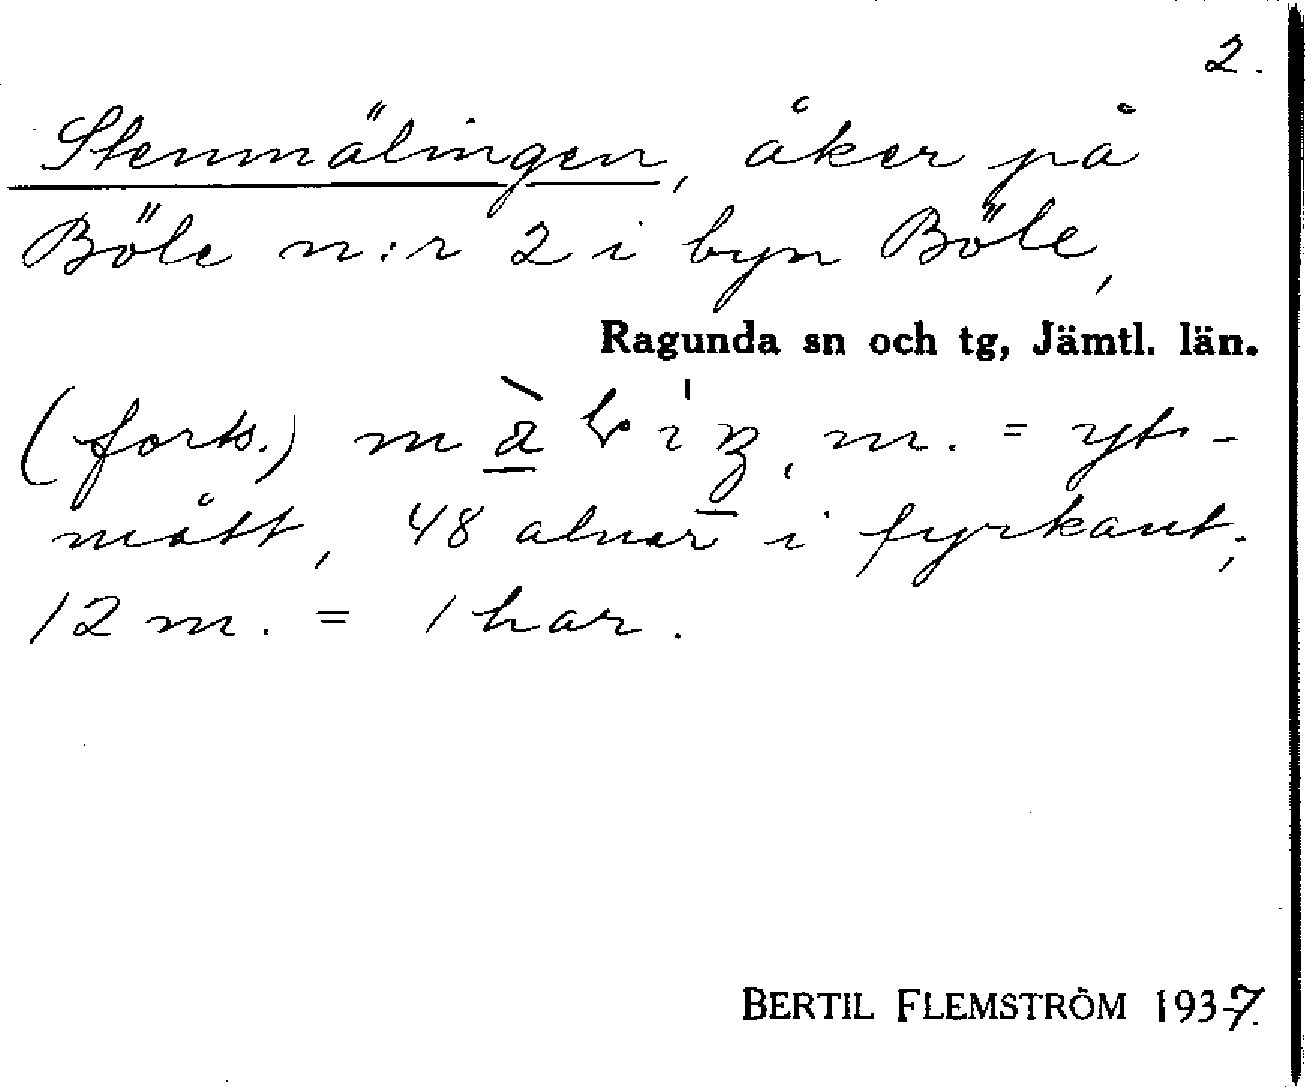 2.
Stenmälingen, åker på
Böle n:r 2 i byn Böle,
Ragunda sn och tg, Jämtl. län.
(forts.) m. = yt-
mått, 48 alnar i fyrkant;
12 m. = 1 har.
BERTIL FLEMSTRÖM 1937.